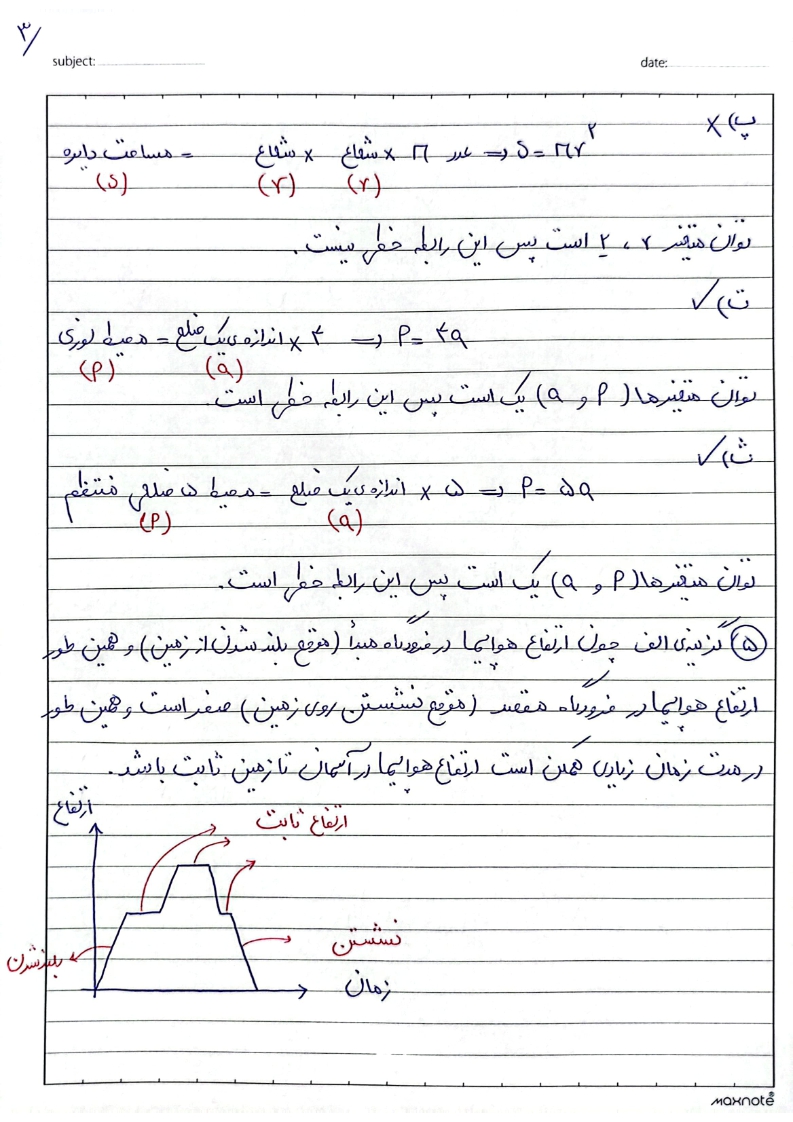 ۳/
subject:
date:
پ) ✗
مساحت دایره = شعاع × شعاع × عدد π ⇒ S = πr²
(S) (r) (r)
توان متغیر r ، ۲ است پس این رابطه خطی نیست.
ت) ✓
محیط لوزی = اندازه‌ی یک ضلع × ۴ ⇒ P = ۴a
(P) (a)
توان متغیرها (P و a) یک است پس این رابطه خطی است.
ث) ✓
محیط ۵ ضلعی منتظم = اندازه‌ی یک ضلع × ۵ ⇒ P = ۵a
(P) (a)
توان متغیرها (P و a) یک است پس این رابطه خطی است.
۵ گزینه‌ی الف چون ارتفاع هواپیما در فرودگاه مبدأ (موقع بلند شدن از زمین) و همین طور
ارتفاع هواپیما در فرودگاه مقصد (موقع نشستن روی زمین) صفر است و همین طور
در مدت زمان زیادی ممکن است ارتفاع هواپیما در آسمان تا زمین ثابت باشد.
ارتفاع
ارتفاع ثابت
بلند شدن
نشستن
زمان
maxnote®